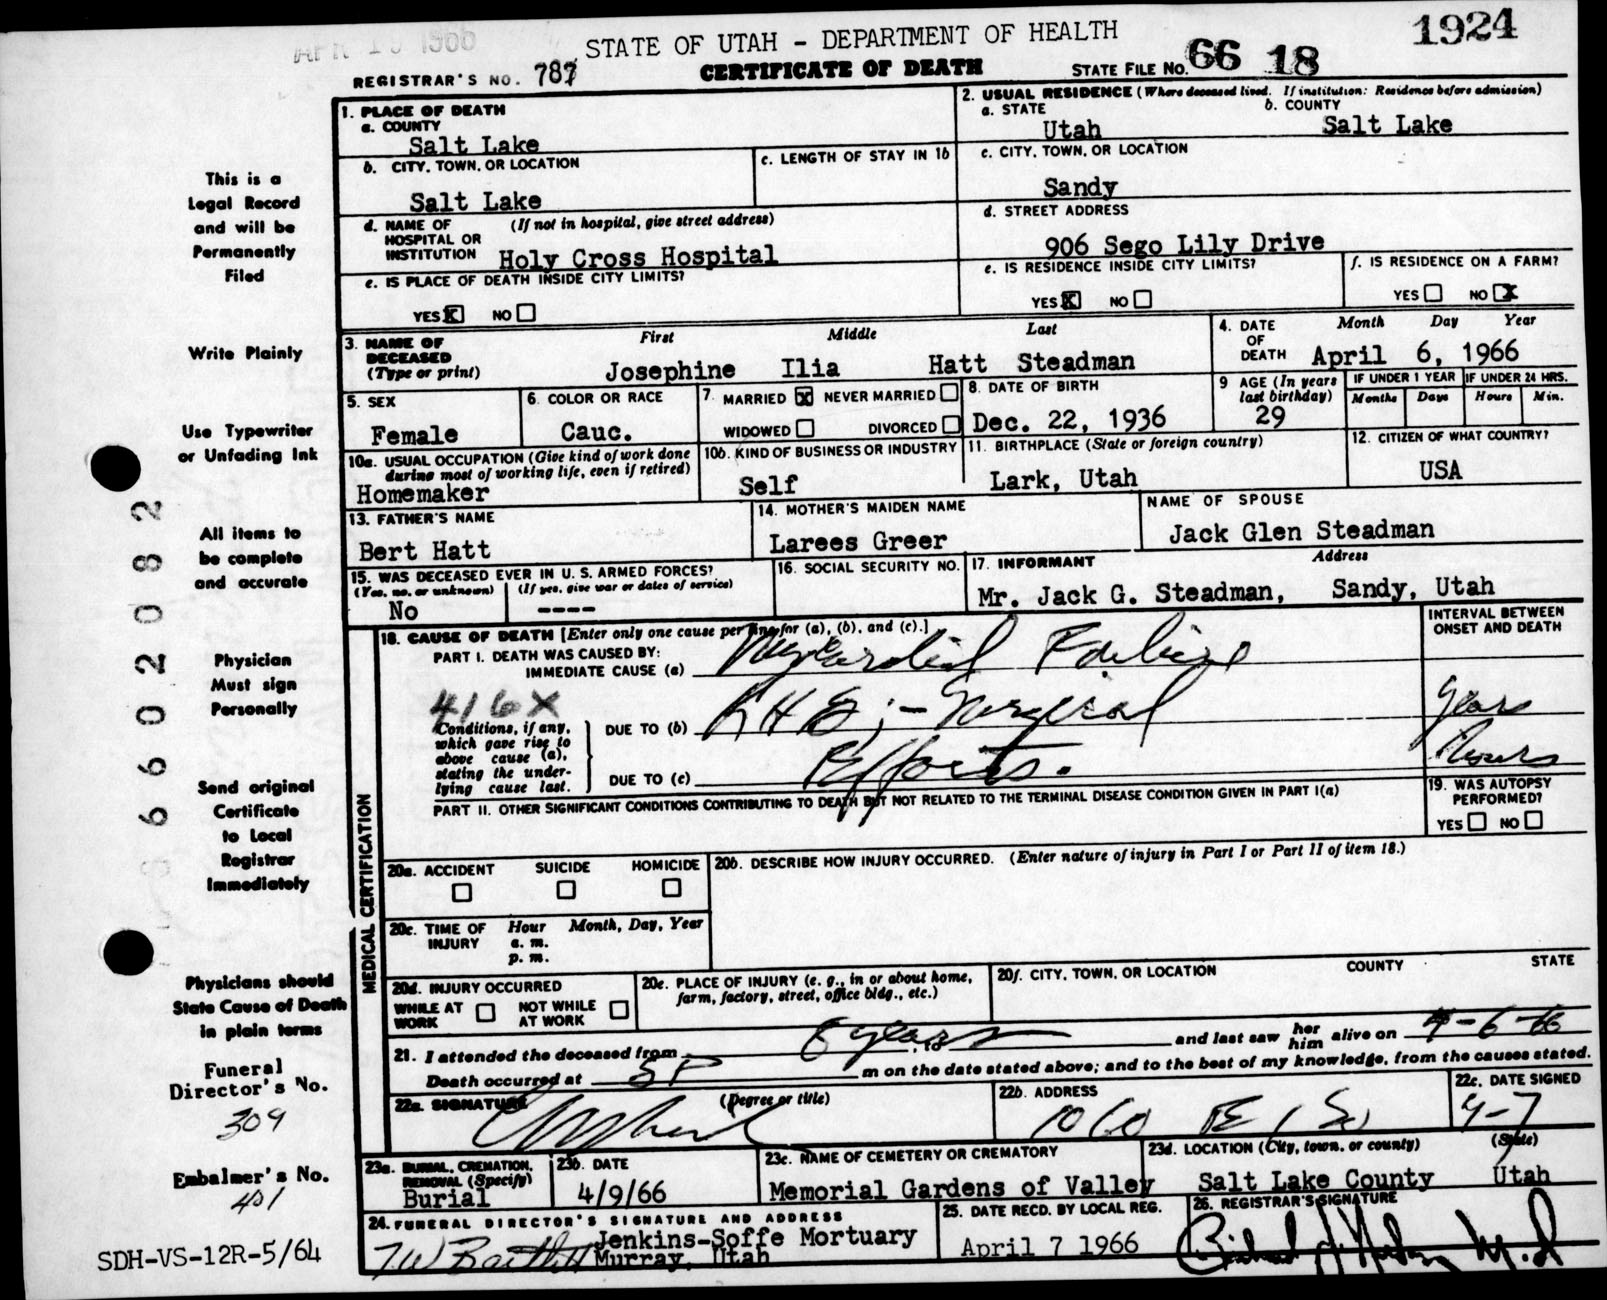 APR 1966
STATE OF UTAH - DEPARTMENT OF HEALTH
1924
REGISTRAR'S NO. 787
CERTIFICATE OF DEATH
STATE FILE NO. 66 18
1. PLACE OF DEATH
a. COUNTY
Salt Lake
2. USUAL RESIDENCE (Where deceased lived. If institution: Residence before admission)
a. STATE b. COUNTY
Utah Salt Lake
b. CITY, TOWN, OR LOCATION
Salt Lake
c. LENGTH OF STAY IN 1b
c. CITY, TOWN, OR LOCATION
Sandy
d. NAME OF HOSPITAL OR INSTITUTION (If not in hospital, give street address)
Holy Cross Hospital
d. STREET ADDRESS
906 Sego Lily Drive
e. IS PLACE OF DEATH INSIDE CITY LIMITS?
YES X NO
e. IS RESIDENCE INSIDE CITY LIMITS?
YES X NO
f. IS RESIDENCE ON A FARM?
YES NO X
3. NAME OF DECEASED (Type or print)
First Middle Last
Josephine Ilia Hatt Steadman
4. DATE OF DEATH Month Day Year
April 6, 1966
5. SEX
Female
6. COLOR OR RACE
Cauc.
7. MARRIED X NEVER MARRIED
WIDOWED DIVORCED
8. DATE OF BIRTH
Dec. 22, 1936
9 AGE (In years last birthday)
29
IF UNDER 1 YEAR IF UNDER 24 HRS.
Months Days Hours Min.
10a. USUAL OCCUPATION (Give kind of work done during most of working life, even if retired)
Homemaker
10b. KIND OF BUSINESS OR INDUSTRY
Self
11. BIRTHPLACE (State or foreign country)
Lark, Utah
12. CITIZEN OF WHAT COUNTRY?
USA
13. FATHER'S NAME
Bert Hatt
14. MOTHER'S MAIDEN NAME
Larees Greer
NAME OF SPOUSE
Jack Glen Steadman
15. WAS DECEASED EVER IN U. S. ARMED FORCES?
(Yes, no, or unknown) (If yes, give war or dates of service)
No ----
16. SOCIAL SECURITY NO.
17. INFORMANT Address
Mr. Jack G. Steadman, Sandy, Utah
MEDICAL CERTIFICATION
18. CAUSE OF DEATH [Enter only one cause per line for (a), (b), and (c).]
INTERVAL BETWEEN ONSET AND DEATH
PART I. DEATH WAS CAUSED BY:
IMMEDIATE CAUSE (a) Myocardial Failure
416X
Conditions, if any, which gave rise to above cause (a), stating the underlying cause last.
DUE TO (b) RHD ;- Surgical Years
DUE TO (c) Efforts. Hours
PART II. OTHER SIGNIFICANT CONDITIONS CONTRIBUTING TO DEATH BUT NOT RELATED TO THE TERMINAL DISEASE CONDITION GIVEN IN PART I(a)
19. WAS AUTOPSY PERFORMED?
YES NO
20a. ACCIDENT SUICIDE HOMICIDE
20b. DESCRIBE HOW INJURY OCCURRED. (Enter nature of injury in Part I or Part II of item 18.)
20c. TIME OF INJURY Hour Month, Day, Year
a. m.
p. m.
20d. INJURY OCCURRED
WHILE AT WORK NOT WHILE AT WORK
20e. PLACE OF INJURY (e. g., in or about home, farm, factory, street, office bldg., etc.)
20f. CITY, TOWN, OR LOCATION COUNTY STATE
21. I attended the deceased from 8 years, to and last saw her him alive on 4-6-66
Death occurred at 5P m on the date stated above; and to the best of my knowledge, from the causes stated.
22a. SIGNATURE (Degree or title)
22b. ADDRESS
1060 E 1 So
22c. DATE SIGNED
4-7
23a. BURIAL, CREMATION, REMOVAL (Specify)
Burial
23b. DATE
4/9/66
23c. NAME OF CEMETERY OR CREMATORY
Memorial Gardens of Valley
23d. LOCATION (City, town, or county) (State)
Salt Lake County Utah
24. FUNERAL DIRECTOR'S SIGNATURE AND ADDRESS
Jenkins-Soffe Mortuary
Murray, Utah
25. DATE RECD. BY LOCAL REG.
April 7 1966
26. REGISTRAR'S SIGNATURE
This is a
Legal Record
and will be
Permanently
Filed
Write Plainly
Use Typewriter
or Unfading Ink
All items to
be complete
and accurate
Physician
Must sign
Personally
Send original
Certificate
to Local
Registrar
Immediately
Physicians should
State Cause of Death
in plain terms
Funeral
Director's No.
309
Embalmer's No.
401
SDH-VS-12R-5/64
6602082